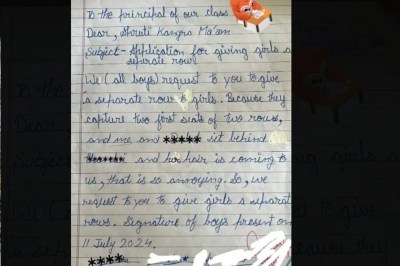 To the principal of our class
Dear, Shruti Kangra Ma'am
Subject - Application for giving girls a
separate row
We (all boys) request to you to give
a separate row to girls. Because they
capture two first seats of two rows,
and me and ***** sit behind
and her hair is coming to
us, that is so annoying. So, we
request to you to give girls a separate
rows. Signature of boys present on
11 July 2024.
****